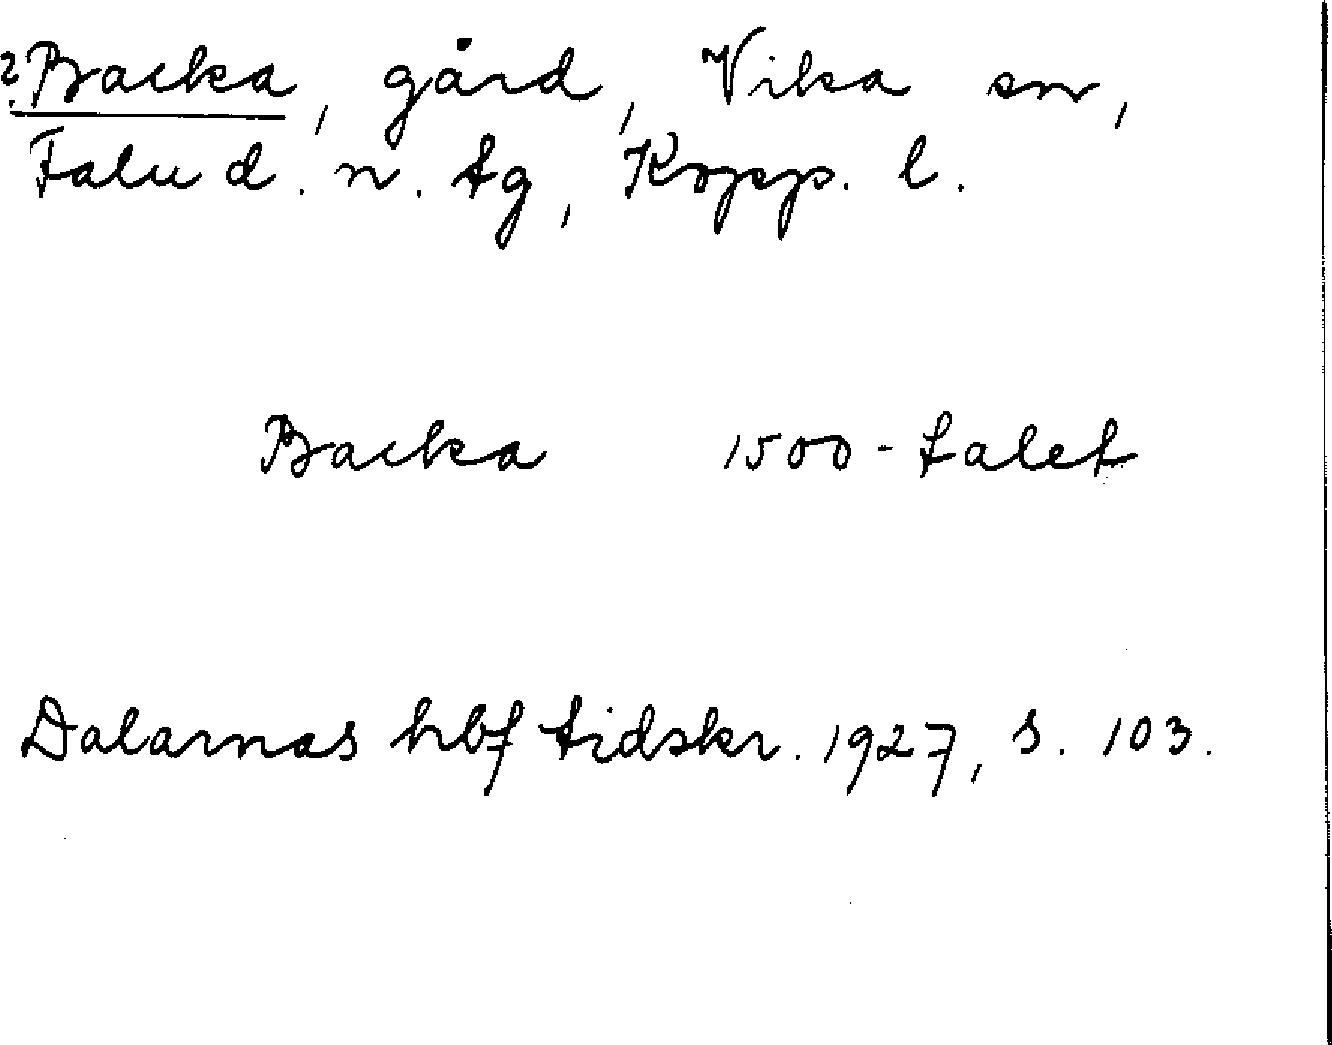 ?Backa, gård, Vika sn,
Falu d. n. tg, Kopp. l.
Backa 1500-talet
Dalarnas hbf tidskr. 1927, s. 103.